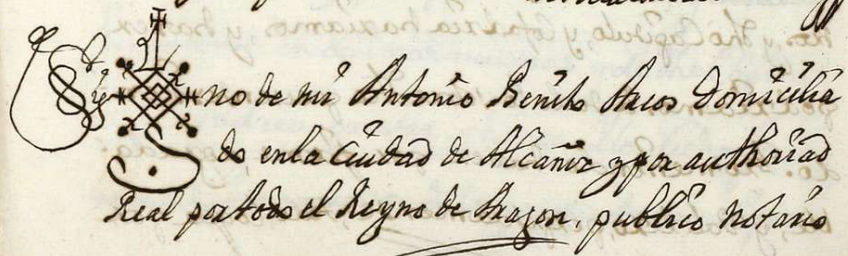 Sig no de mi Antonio Benito Arcos Domicilia
do en la Ciudad de Alcañiz y por authoridad
Real por todo el Reyno de Aragon, publico Notario